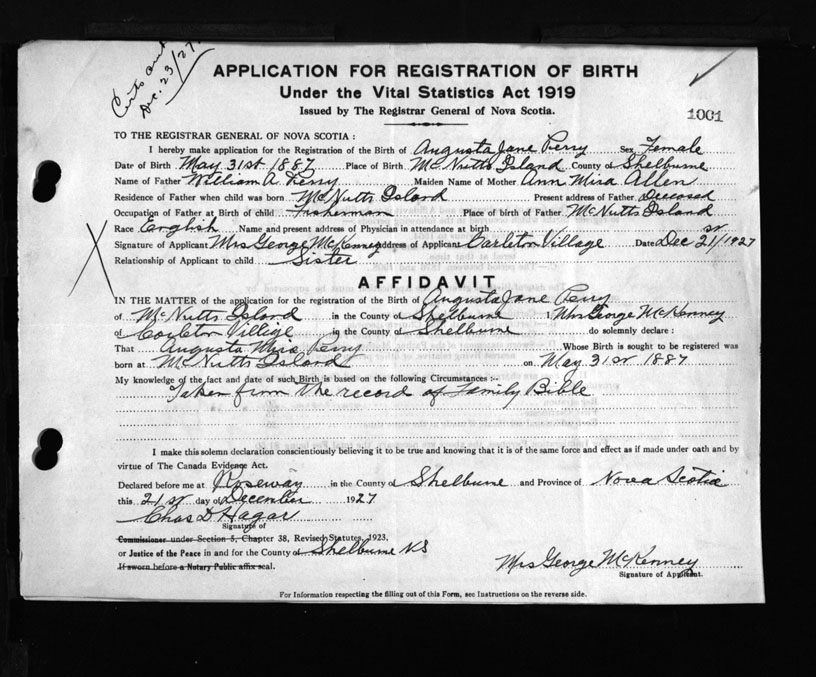 Certs and
Dec. 23/27
APPLICATION FOR REGISTRATION OF BIRTH
Under the Vital Statistics Act 1919
Issued by The Registrar General of Nova Scotia.
1001
TO THE REGISTRAR GENERAL OF NOVA SCOTIA :
I hereby make application for the Registration of the Birth of Augusta Jane Perry Sex Female
Date of Birth May 31st 1887 Place of Birth McNutts Island County of Shelburne
Name of Father William A Perry Maiden Name of Mother Ann Mira Allen
Residence of Father when child was born McNutts Island Present address of Father Deceased
Occupation of Father at Birth of child Fisherman Place of birth of Father McNutts Island
Race English Name and present address of Physician in attendance at birth
Signature of Applicant Mrs George McKenney address of Applicant Carleton Village Date Dec 21st/1927
Relationship of Applicant to child Sister
AFFIDAVIT
IN THE MATTER of the application for the registration of the Birth of Augusta Jane Perry
of McNutts Island in the County of Shelburne I Mrs George McKenney
of Carleton Village in the County of Shelburne do solemnly declare :
That Augusta Perry Whose Birth is sought to be registered was
born at McNutts Island on May 31st 1887
My knowledge of the fact and date of such Birth is based on the following Circumstances :-
Taken from the record of Family Bible
I make this solemn declaration conscientiously believing it to be true and knowing that it is of the same force and effect as if made under oath and by
virtue of The Canada Evidence Act.
Declared before me at Roseway in the County of Shelburne and Province of Nova Scotia
this 21st day of December 1927
Chas D Hagar
Signature of
Commissioner under Section 5, Chapter 38, Revised Statutes, 1923.
or Justice of the Peace in and for the County of Shelburne NS
If sworn before a Notary Public affix seal.
Mrs George McKenney
Signature of Applicant.
For Information respecting the filling out of this Form, see Instructions on the reverse side.